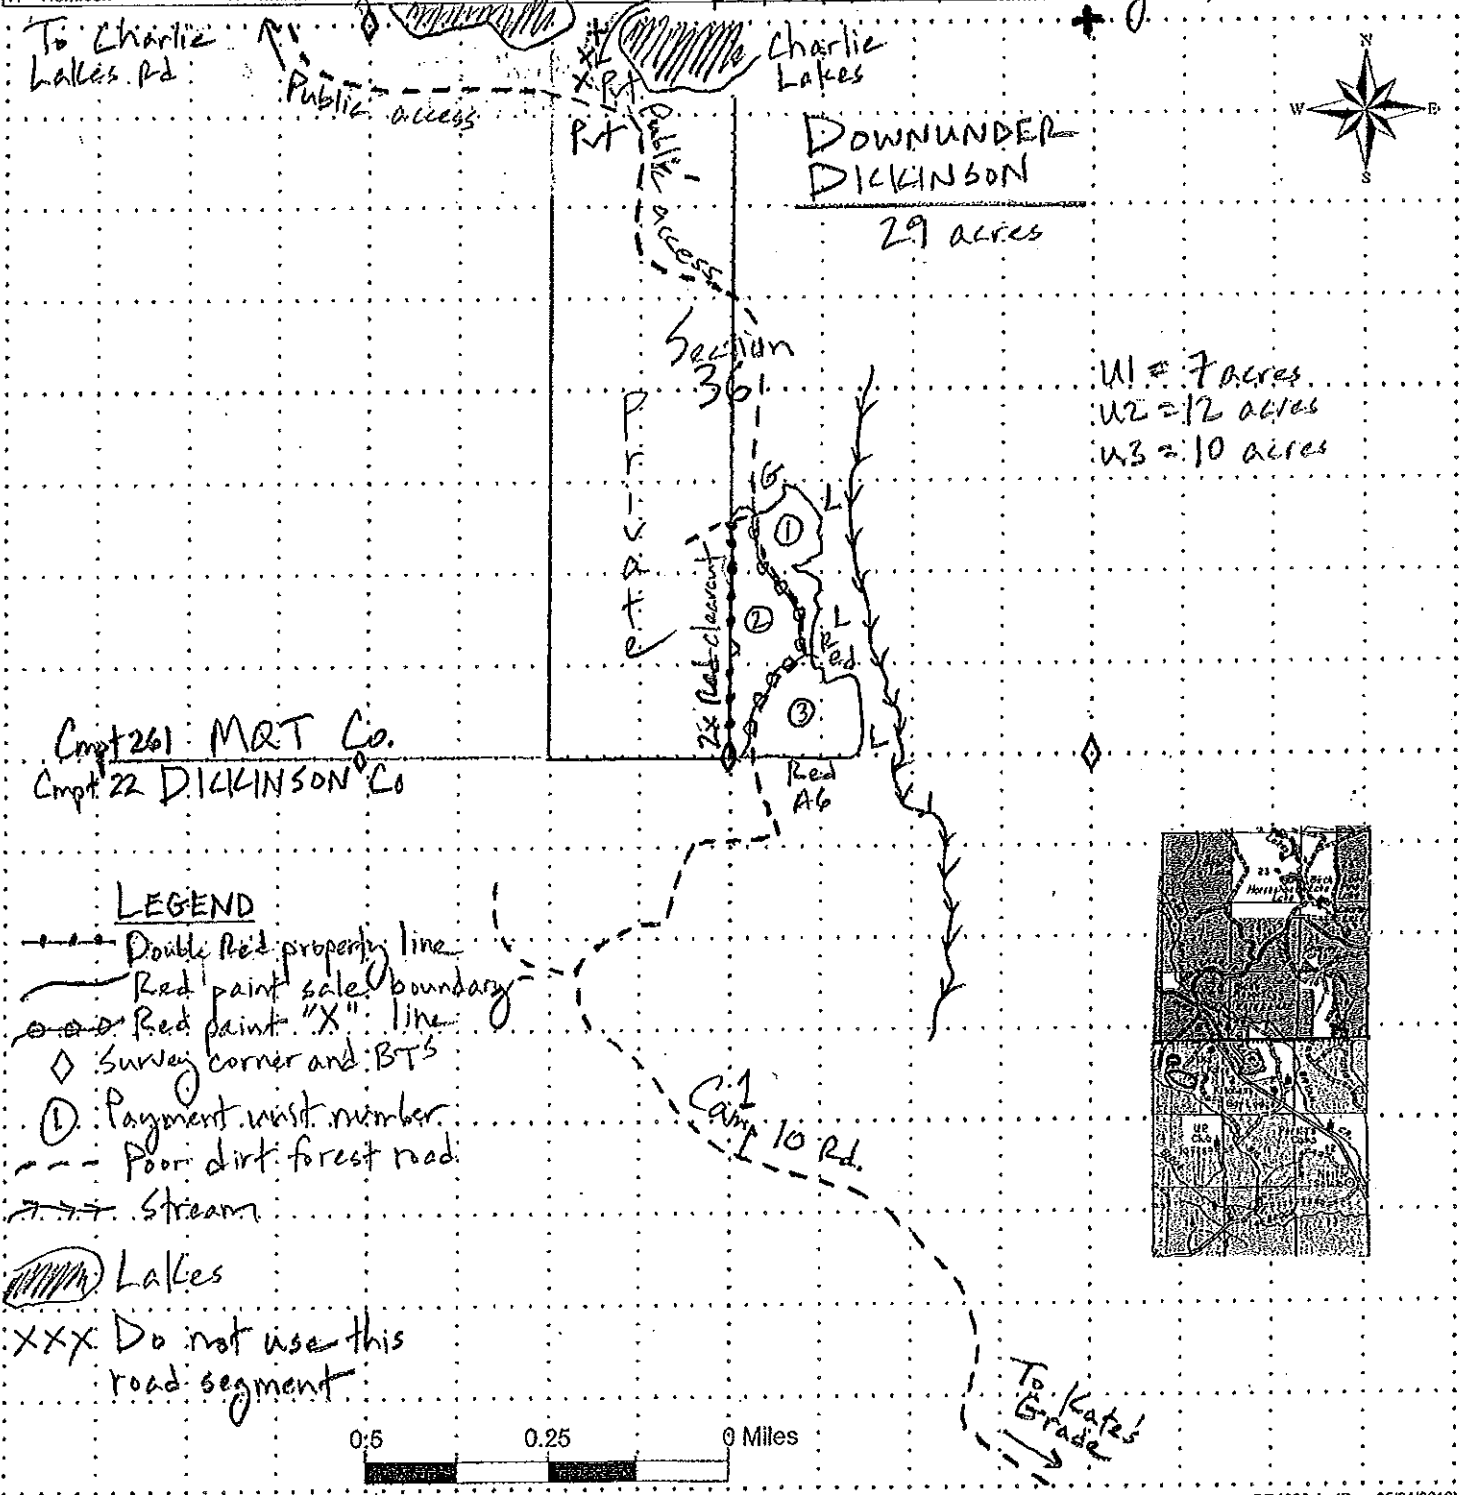 To Charlie
Lakes Rd
Public access
Pvt
Pvt
Public access
Charlie
Lakes
N
W E
S
DOWNUNDER
DICKINSON
29 acres
Section
36
U1 = 7 acres
U2 = 12 acres
U3 = 10 acres
Private
G
L
①
2x Red clearcut
②
L
Red
③
L
Red
A6
Cmpt 261 MQT Co.
Cmpt 22 DICKINSON Co
LEGEND
Double Red property line
Red paint sale boundary
Red paint "X" line
Survey corner and BTS
① Payment unit number
Poor dirt forest road
Stream
Lakes
XXX Do not use this
road segment
Camp 10 Rd.
To Kate's
Grade
0.5 0.25 0 Miles